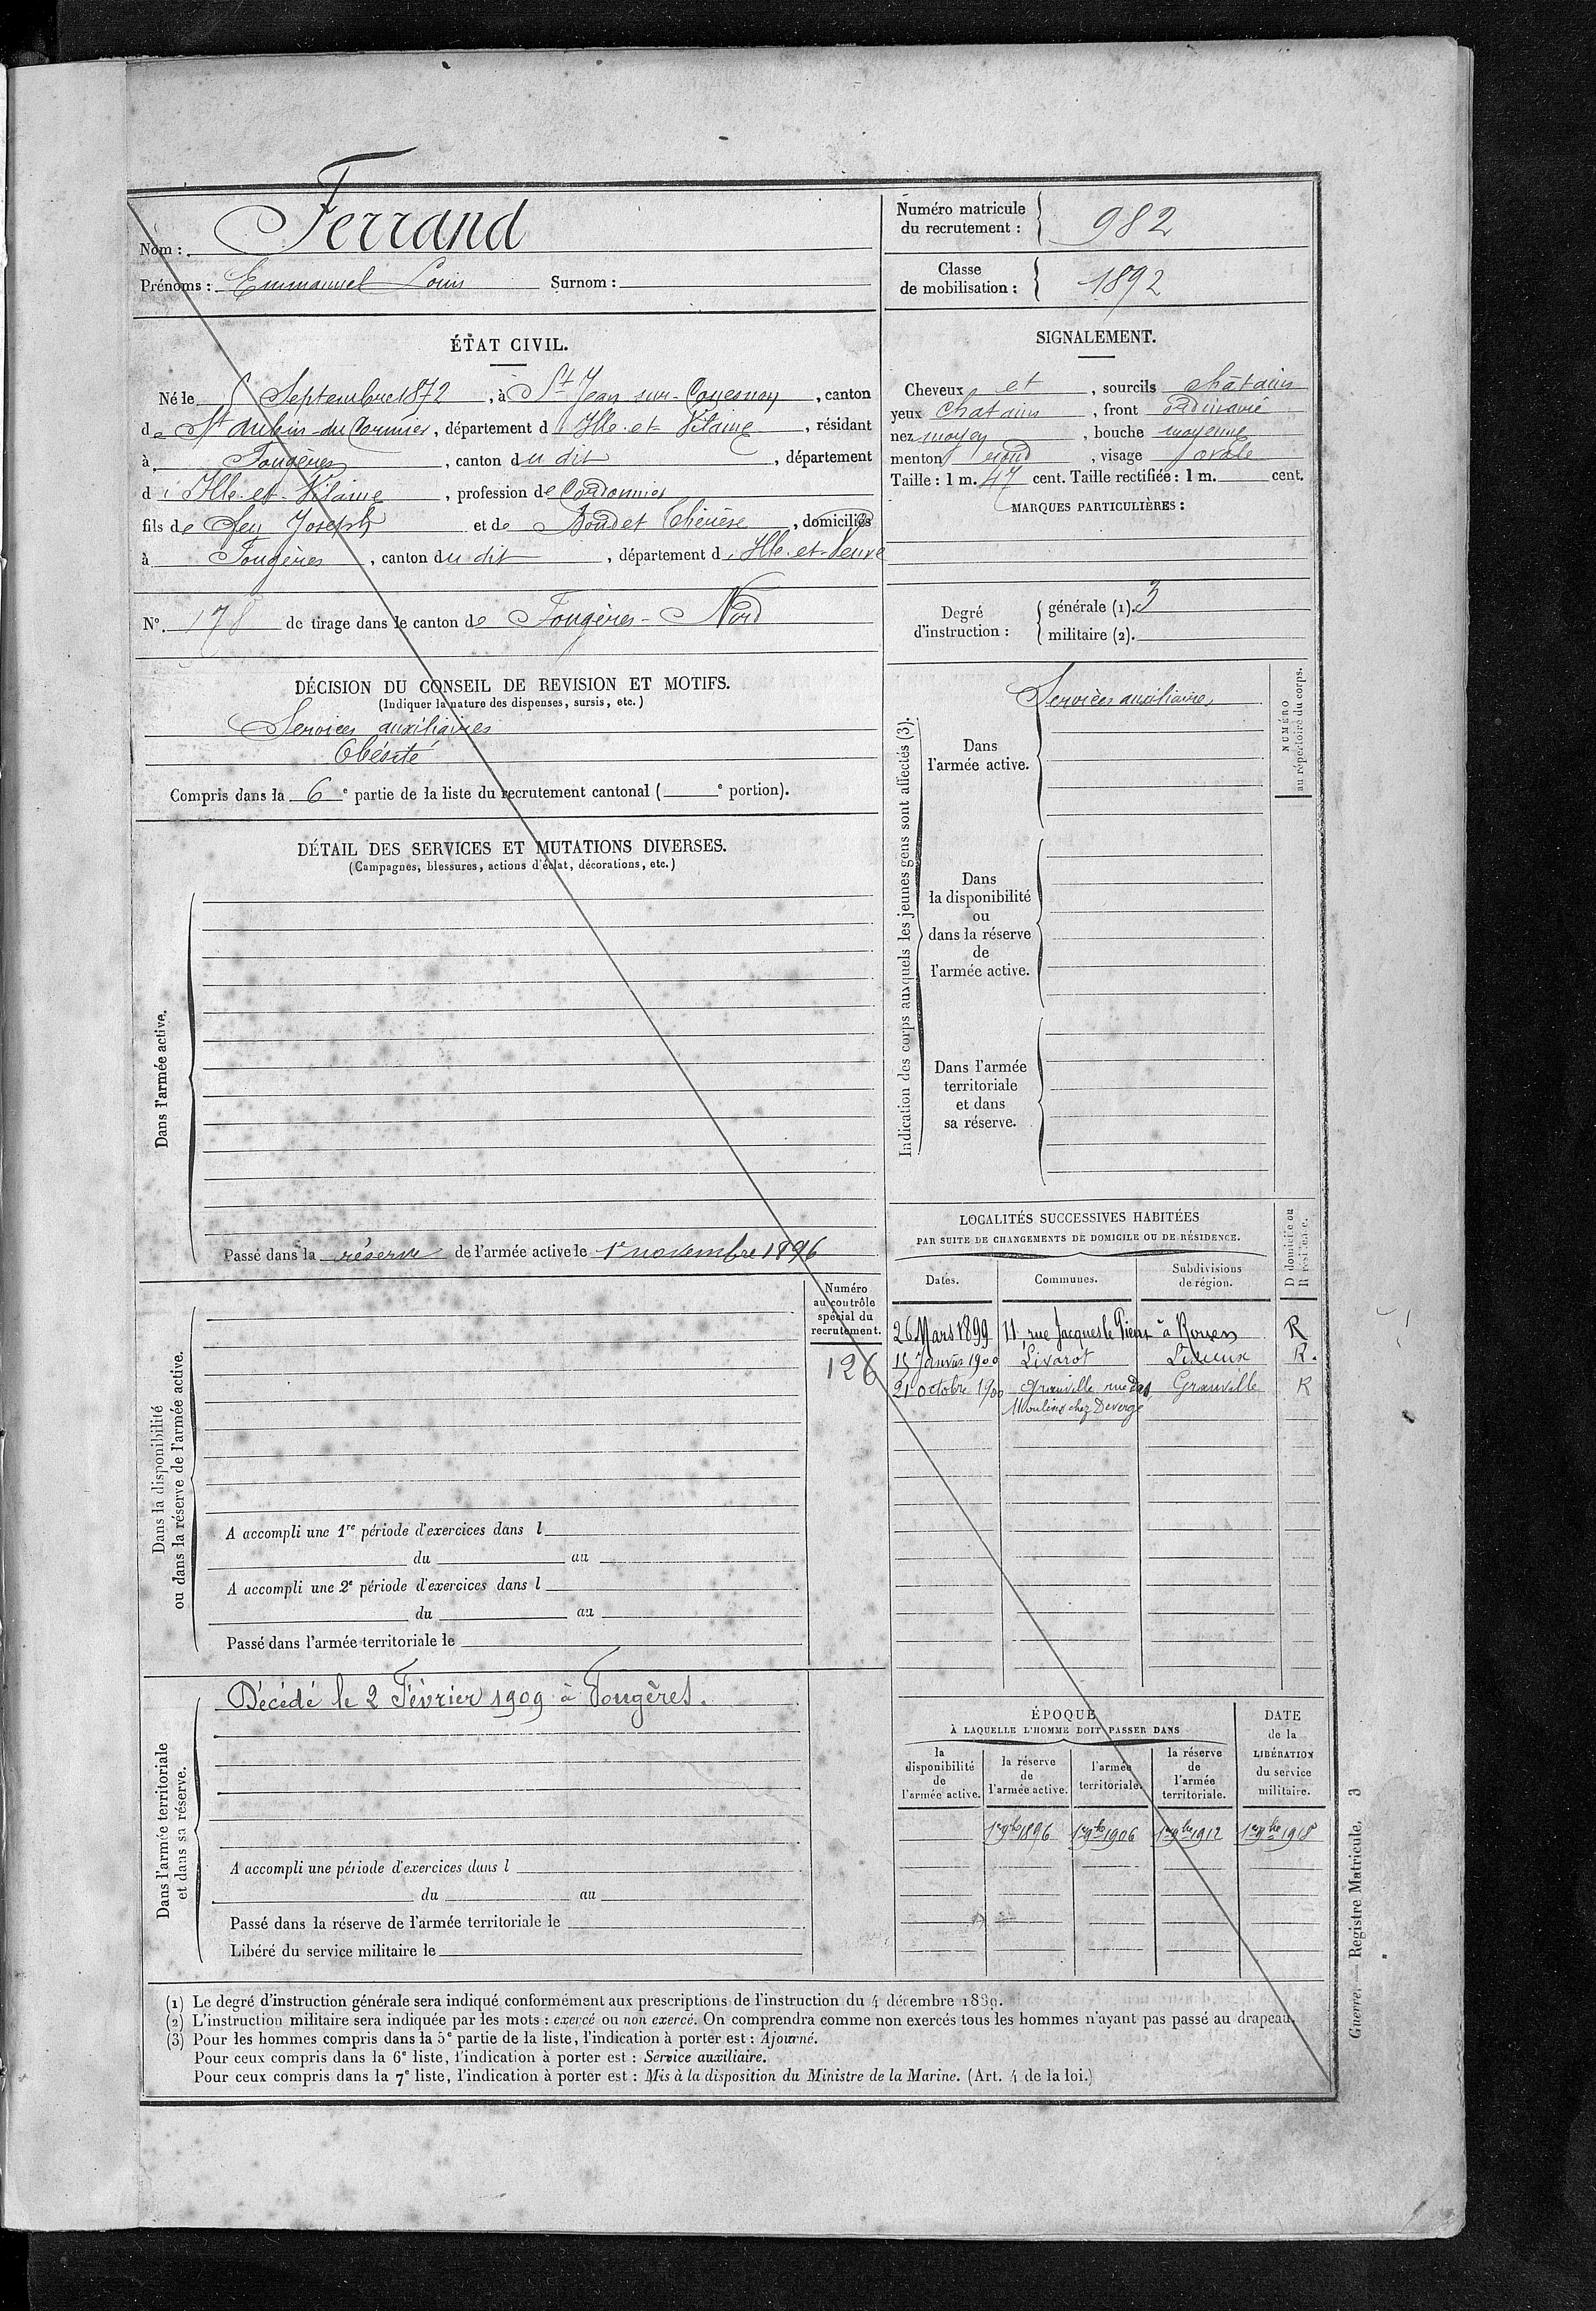 Nom : Ferrand
Prénoms : Emmanuel Louis Surnom :
Numéro matricule du recrutement : 982
Classe de mobilisation : 1892
ÉTAT CIVIL.
Né le 5 Septembre 1872, à St Jean sur-Couesnon, canton
de St Aubin-du-Cormier, département d Ille-et-Vilaine, résidant
à Fougères, canton du dit, département
d'Ille-et-Vilaine, profession de Cordonnier
fils de feu Joseph et de Boudet Thérèse, domiciliés
à Fougères, canton du dit, département d'Ille-et-Veuve
N° 178 de tirage dans le canton de Fougères-Nord
DÉCISION DU CONSEIL DE REVISION ET MOTIFS.
(Indiquer la nature des dispenses, sursis, etc.)
Services auxiliaires
Obésité
Compris dans la 6e partie de la liste du recrutement cantonal ( e portion).
DÉTAIL DES SERVICES ET MUTATIONS DIVERSES.
(Campagnes, blessures, actions d'éclat, décorations, etc.)
Dans l'armée active.
Passé dans la réserve de l'armée active le 1er novembre 1896
Numéro
au contrôle
spécial du
recrutement.
126
Dans la disponibilité
ou dans la réserve de l'armée active.
A accompli une 1re période d'exercices dans l
du au
A accompli une 2e période d'exercices dans l
du au
Passé dans l'armée territoriale le
Dans l'armée territoriale
et dans sa réserve.
Décédé le 2 Février 1909 à Fougères.
A accompli une période d'exercices dans l
du au
Passé dans la réserve de l'armée territoriale le
Libéré du service militaire le
SIGNALEMENT.
Cheveux et, sourcils châtains
yeux châtains, front ordinaire
nez moyen, bouche moyenne
menton rond, visage ovale
Taille : 1 m. 47 cent. Taille rectifiée : 1 m. cent.
MARQUES PARTICULIÈRES :
Degré d'instruction :
générale (1). 3
militaire (2).
Indication des corps auxquels les jeunes gens sont affectés (3).
NUMÉRO
au répertoire du corps.
Services auxiliaires
Dans
l'armée active.
Dans
la disponibilité
ou
dans la réserve
de
l'armée active.
Dans l'armée
territoriale
et dans
sa réserve.
LOCALITÉS SUCCESSIVES HABITÉES
PAR SUITE DE CHANGEMENTS DE DOMICILE OU DE RÉSIDENCE.
D domicile ou
R résidence.
Dates. Communes. Subdivisions de région.
26 Mars 1899 11, rue Jacques le Pieur à Rouen R
15 Janvier 1900 Livarot Lisieux R.
21 octobre 1900 Granville rue des Granville R
Moulins chez Devergé
ÉPOQUE
À LAQUELLE L'HOMME DOIT PASSER DANS
la
disponibilité
de
l'armée active.
la réserve
de
l'armée active.
l'armée
territoriale.
la réserve
de
l'armée
territoriale.
DATE
de la
LIBÉRATION
du service
militaire.
1er 9bre 1896 1er 9bre 1906 1er 9bre 1912 1er 9bre 1918
(1) Le degré d'instruction générale sera indiqué conformément aux prescriptions de l'instruction du 4 décembre 1889.
(2) L'instruction militaire sera indiquée par les mots : exercé ou non exercé. On comprendra comme non exercés tous les hommes n'ayant pas passé au drapeau.
(3) Pour les hommes compris dans la 5e partie de la liste, l'indication à porter est : Ajourné.
Pour ceux compris dans la 6e liste, l'indication à porter est : Service auxiliaire.
Pour ceux compris dans la 7e liste, l'indication à porter est : Mis à la disposition du Ministre de la Marine. (Art. 4 de la loi.)
Guerre. — Registre Matricule. 3